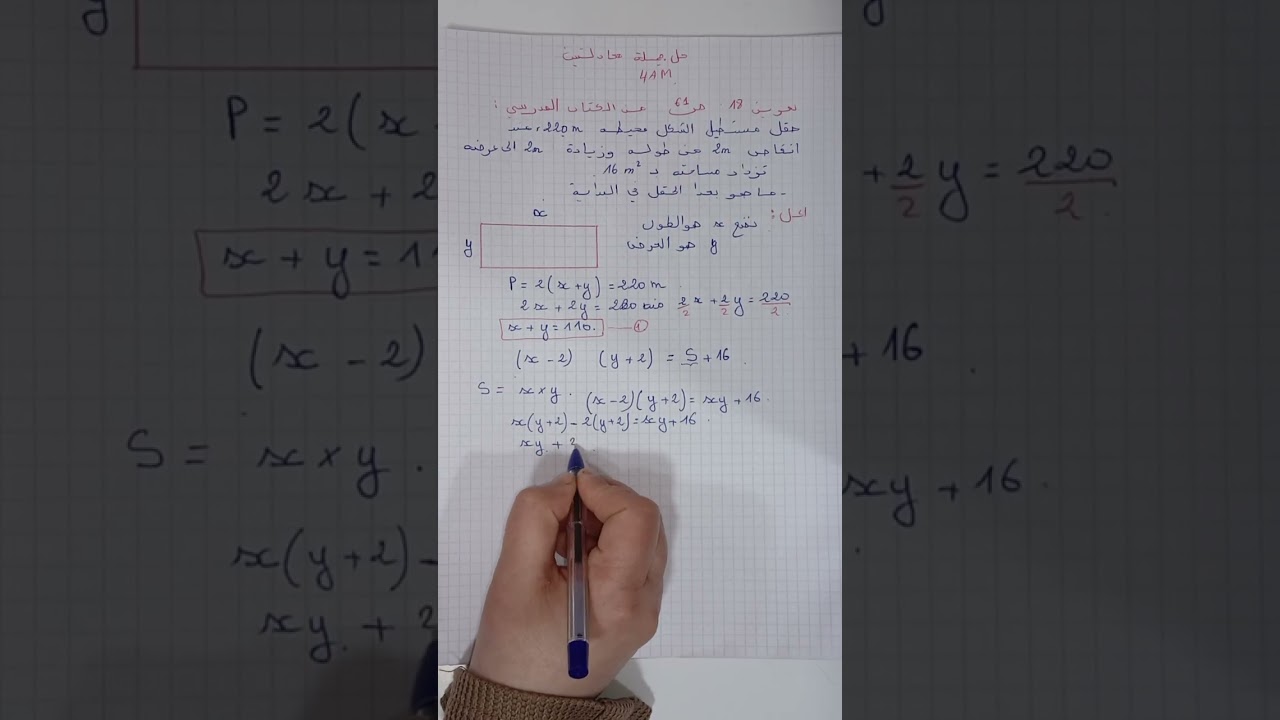 حل جملة معادلتين
4AM
تمرين 18 ص 61 من الكتاب المدرسي :
حقل مستطيل الشكل محيطه 220m، عند
انقاص 2m من طوله وزيادة 2m الى عرضه
تزداد مساحته بـ 16 m²
- ما هو بعدا الحقل في البداية
الحل :
نضع x هو الطول
y هو العرض
x
y
P = 2(x+y) = 220 m
2x + 2y = 220 منه 2/2 x + 2/2 y = 220/2
x + y = 110. —— ①
(x - 2) (y + 2) = S + 16
S = x × y . (x-2)(y+2) = xy + 16.
x(y+2) - 2(y+2) = xy + 16 .
xy + 2